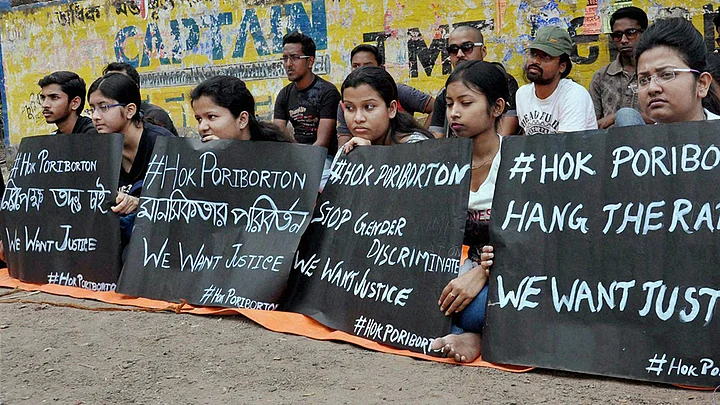 CAPTAIN
TMC
#HOK PORIBORTON
নিরপেক্ষ তদন্ত চাই
WE WANT JUSTICE
#HOK PORIBORTON
#HOK PORIBORTON
মানসিকতার পরিবর্তন
WE WANT JUSTICE
#HOK PORIBORTON
#HOK PORIBORTON
STOP GENDER
DISCRIMINATE
WE WANT JUSTICE
#HOK PORIBORTON
#HOK PORIBOR
HANG THE RA
WE WANT JUST
#HOK PO